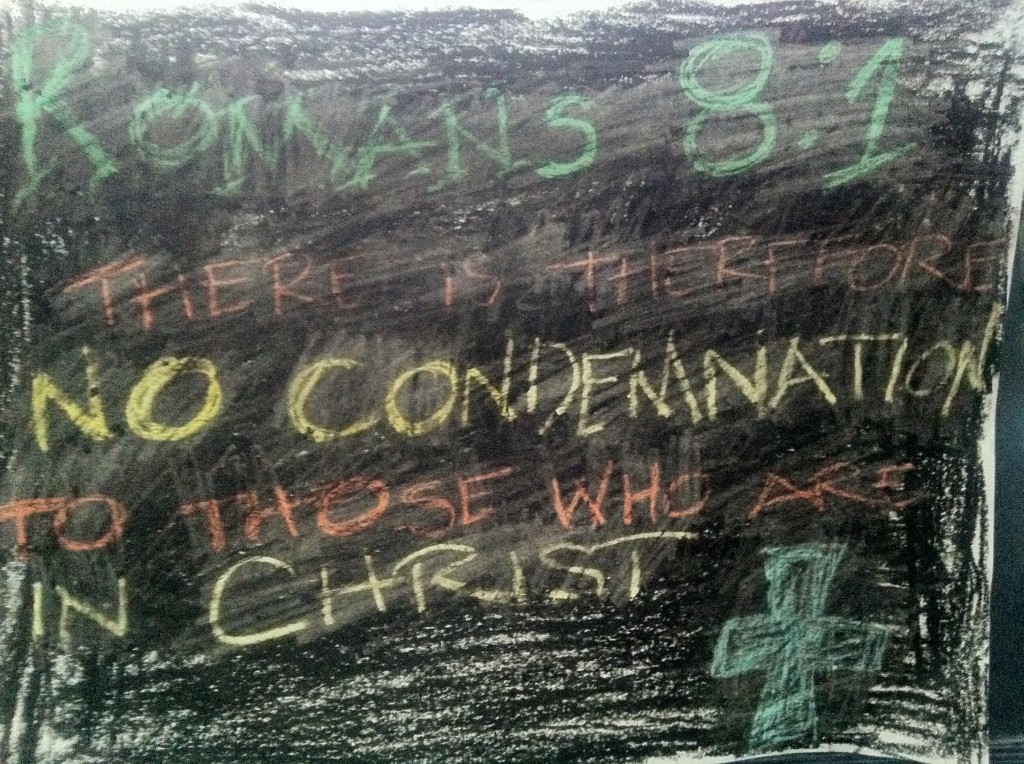 ROMANS 8:1
THERE IS THEREFORE
NO CONDEMNATION
TO THOSE WHO ARE
IN CHRIST